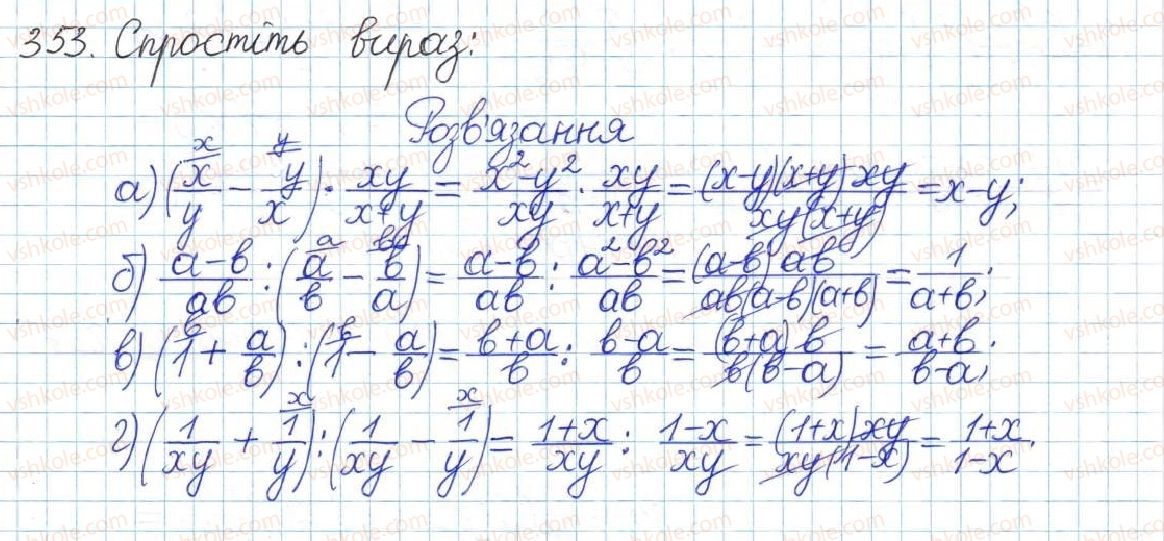 353. Спростіть вираз:
Розв'язання
а) (x/y − y/x) · xy/(x+y) = (x²−y²)/xy · xy/(x+y) = (x−y)(x+y)xy/xy(x+y) = x−y;
б) (a−b)/ab : (a/b − b/a) = (a−b)/ab : (a²−b²)/ab = (a−b)ab/ab(a−b)(a+b) = 1/(a+b);
в) (1 + a/b) : (1 − a/b) = (b+a)/b : (b−a)/b = (b+a)b/b(b−a) = (a+b)/(b−a);
г) (1/xy + 1/y) : (1/xy − 1/y) = (1+x)/xy : (1−x)/xy = (1+x)xy/xy(1−x) = (1+x)/(1−x).